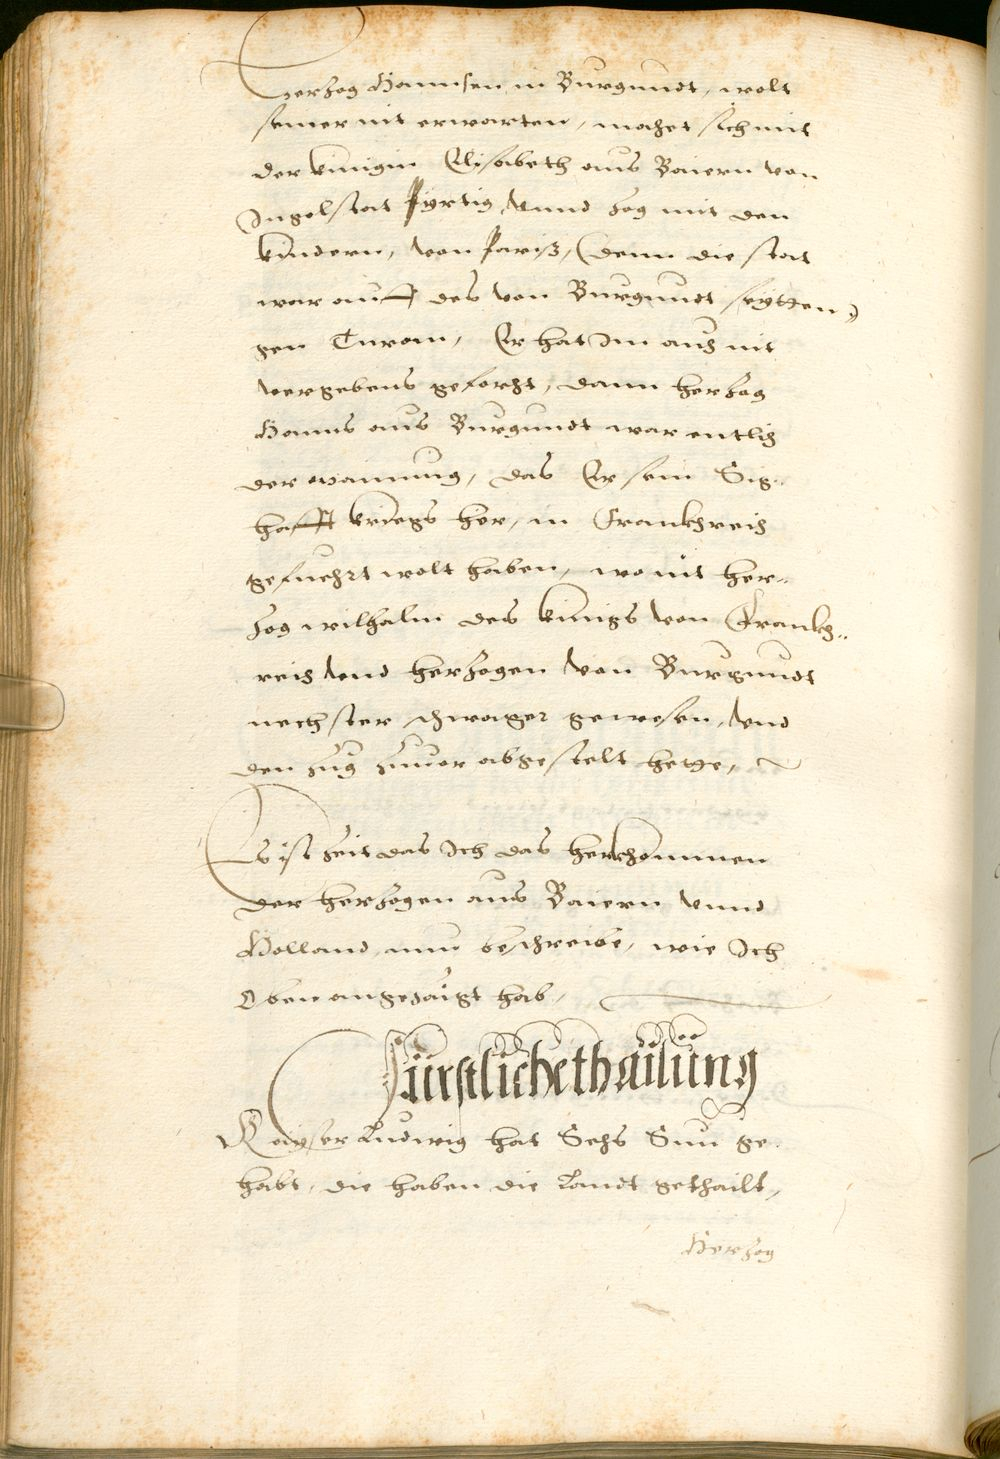 Herzog Hannsen in Burgundt, wolt
seiner nit erwarten, machet sich mit
der künigin Elisabeth aus Baiern von
Ingolstat fyrtig, vnnd zog mit den
kindern, von Pariß, (denn die stat
war auff des von Burgundt seytten)
gen Turon, Er hat Im auch nit
vergebens geforcht, dann herzog
Hanns aus Burgundt war entlich
der mainung, das Er sein Sig-
hafft kriegs her, in Franckhreich
gefuehrt wolt haben, wo nit her-
zog wilhalm des künigs von Franckh-
reich vnd herzogen von Burgundt
nechster schwager gewesen, vnd
den zug zuuor abgestelt hette,
Es ist zeit das Ich das herkhommen
der herzogen aus Baiern vnnd
Holland, nun beschreibe, wie Ich
Oben angezaigt hab,
Fürstliche thailung
Kayser Ludwig hat Sechs Sun ge-
habt, die haben die Landt gethailt,
Herzog